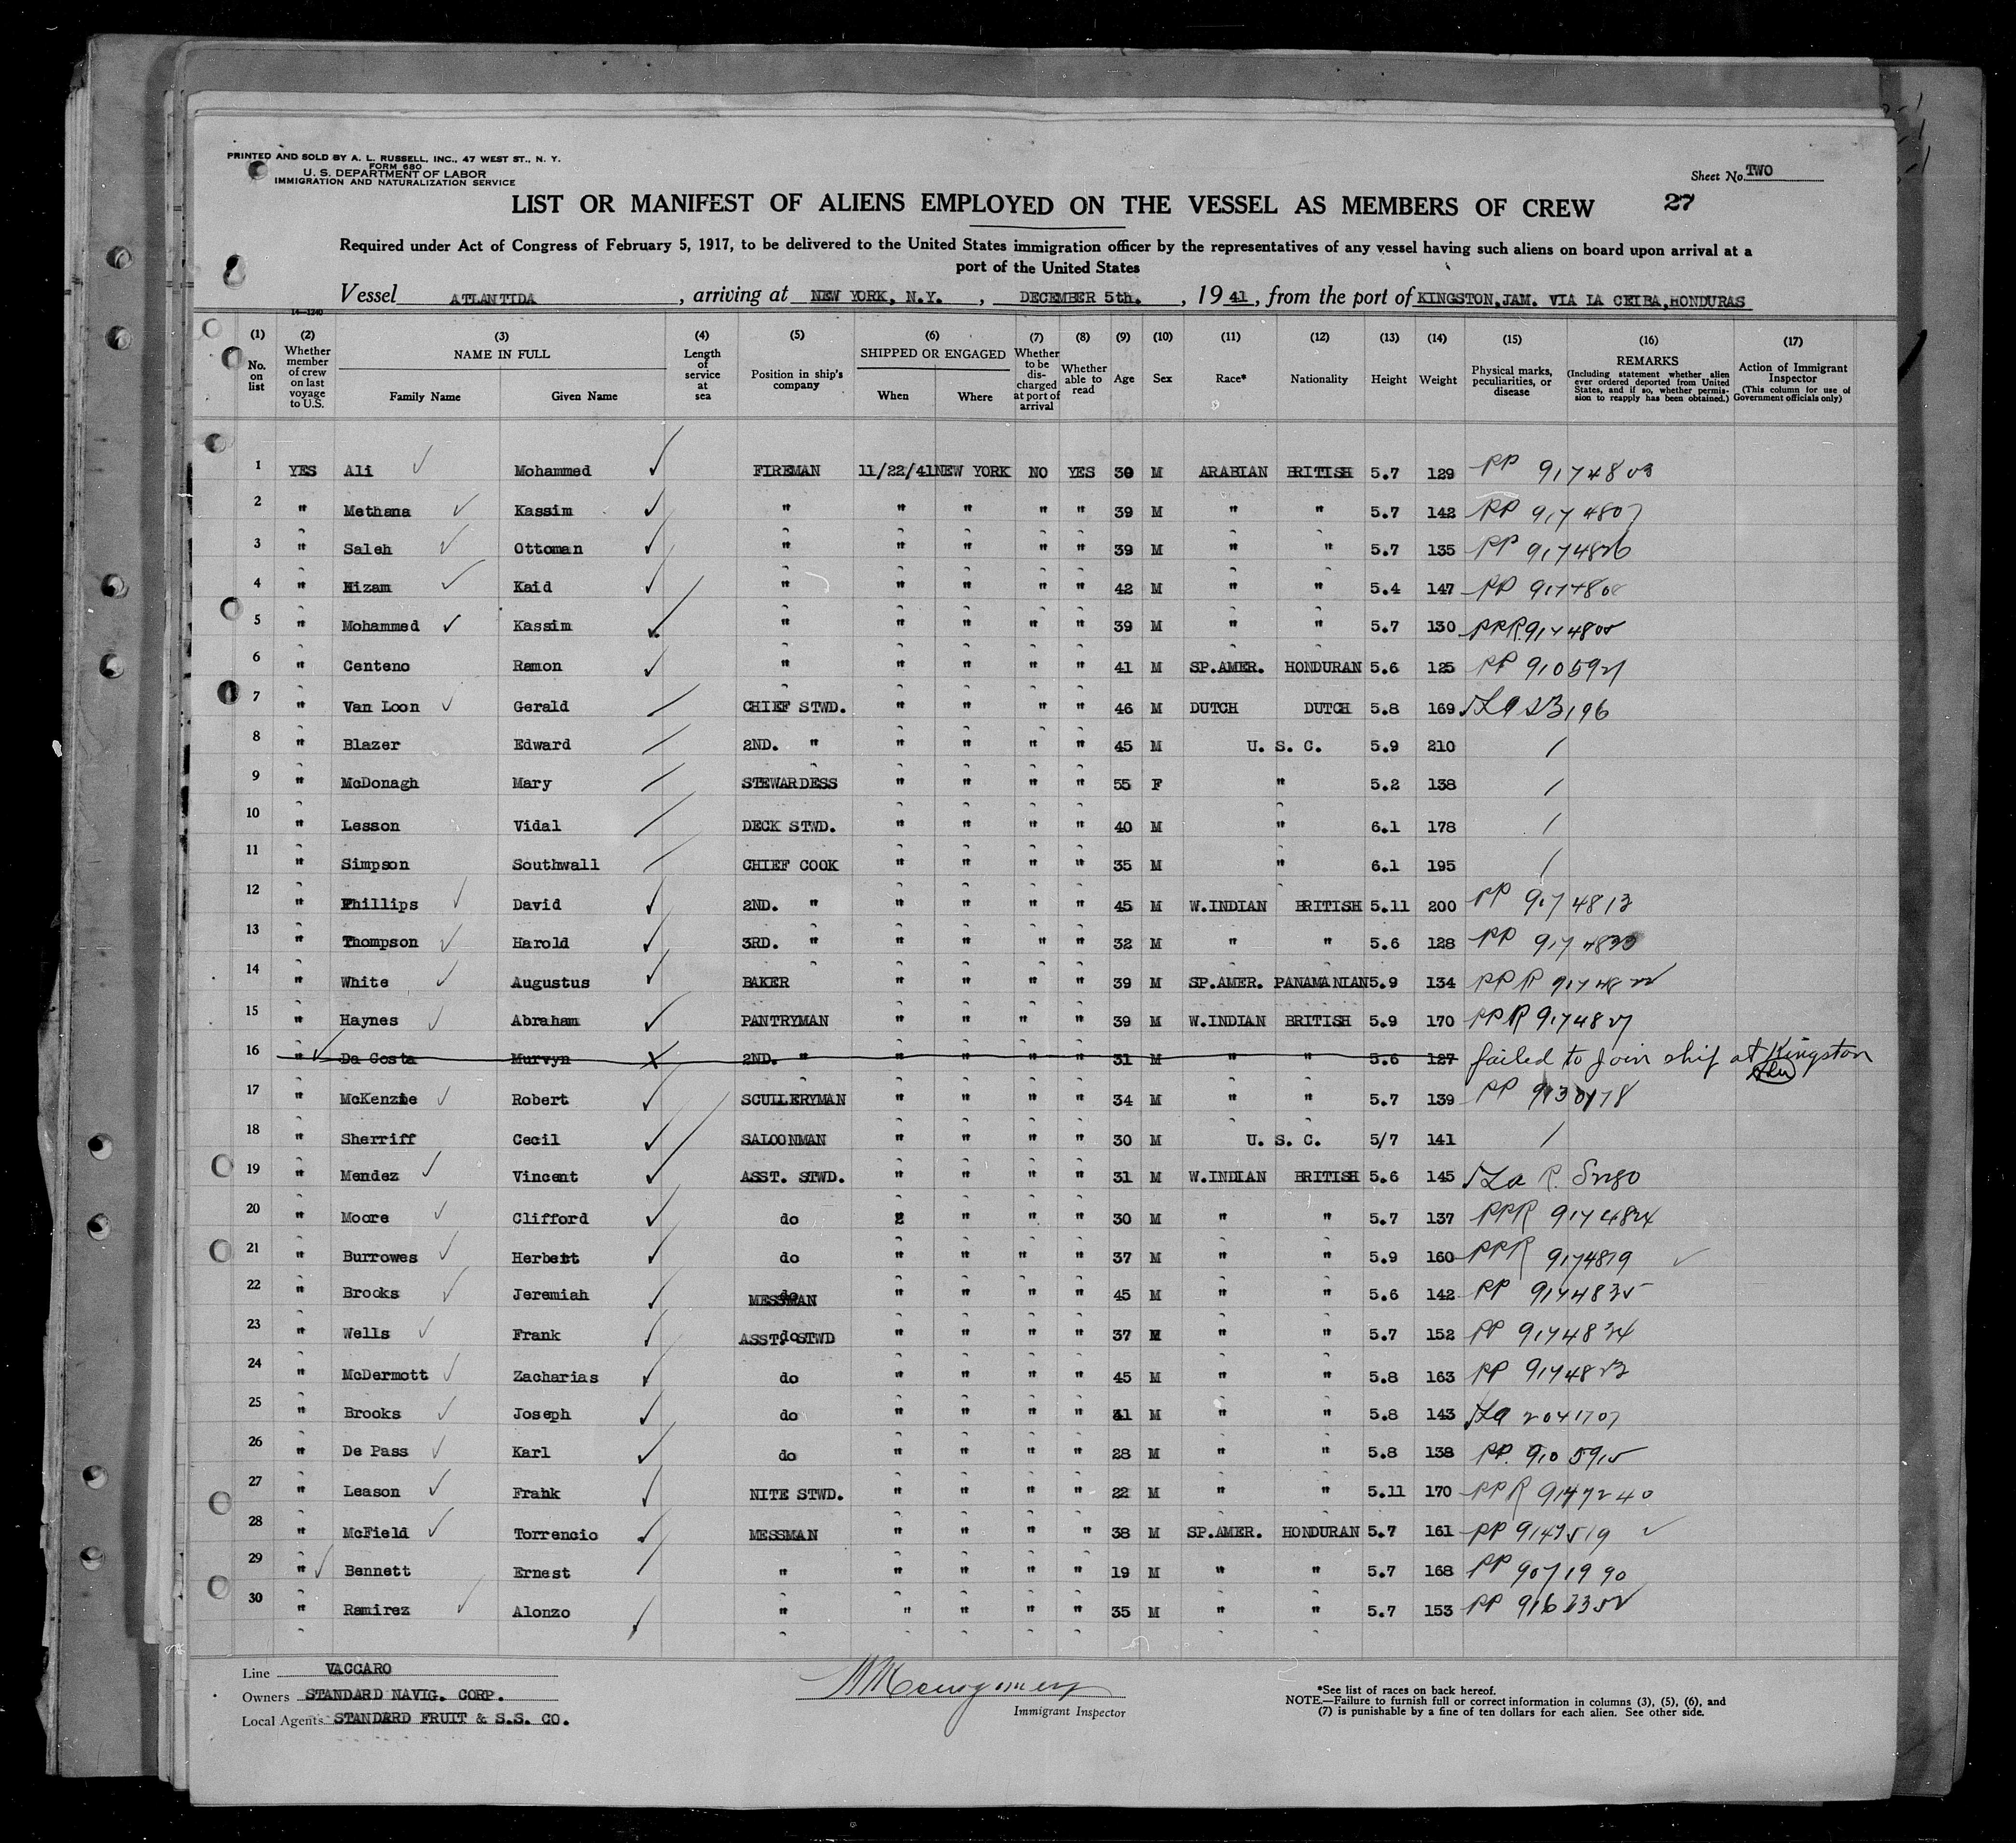 PRINTED AND SOLD BY A. L. RUSSELL, INC., 47 WEST ST., N. Y.
FORM 680
U. S. DEPARTMENT OF LABOR
IMMIGRATION AND NATURALIZATION SERVICE
Sheet No. TWO
LIST OR MANIFEST OF ALIENS EMPLOYED ON THE VESSEL AS MEMBERS OF CREW 27
Required under Act of Congress of February 5, 1917, to be delivered to the United States immigration officer by the representatives of any vessel having such aliens on board upon arrival at a
port of the United States
Vessel ATLANTIDA, arriving at NEW YORK, N.Y., DECEMBER 5th., 1941, from the port of KINGSTON, JAM. VIA LA CEIBA, HONDURAS
14—1240
(1) No. on list
(2) Whether member of crew on last voyage to U.S.
(3) NAME IN FULL Family Name Given Name
(4) Length of service at sea
(5) Position in ship's company
(6) SHIPPED OR ENGAGED When Where
(7) Whether to be discharged at port of arrival
(8) Whether able to read
(9) Age
(10) Sex
(11) Race*
(12) Nationality
(13) Height
(14) Weight
(15) Physical marks, peculiarities, or disease
(16) REMARKS (Including statement whether alien ever ordered deported from United States, and if so, whether permission to reapply has been obtained.)
(17) Action of Immigrant Inspector (This column for use of Government officials only)
1 YES Ali Mohammed FIREMAN 11/22/41 NEW YORK NO YES 30 M ARABIAN BRITISH 5.7 129 PP 9174803
2 " Methana Kassim " " " " " 39 M " " 5.7 142 PP 9174807
3 " Saleh Ottoman " " " " " 39 M " " 5.7 135 PP 9174826
4 " Hizam Kaid " " " " " 42 M " " 5.4 147 PP
5 " Mohammed Kassim " " " " " 39 M " " 5.7 130 PPR
6 " Centeno Ramon " " " " " 41 M SP.AMER. HONDURAN 5.6 125 PP
7 " Van Loon Gerald CHIEF STWD. " " " " 46 M DUTCH DUTCH 5.8 169
8 " Blazer Edward 2ND. " " " " " 45 M U. S. C. 5.9 210 /
9 " McDonagh Mary STEWARDESS " " " " 55 F " 5.2 138 /
10 " Lesson Vidal DECK STWD. " " " " 40 M " 6.1 178 /
11 " Simpson Southwall CHIEF COOK " " " " 35 M " 6.1 195 /
12 " Phillips David 2ND. " " " " " 45 M W.INDIAN BRITISH 5.11 200 PP 9174813
13 " Thompson Harold 3RD. " " " " " 32 M " " 5.6 128 PP
14 " White Augustus BAKER " " " " 39 M SP.AMER. PANAMANIAN 5.9 134 PPR
15 " Haynes Abraham PANTRYMAN " " " " 39 M W.INDIAN BRITISH 5.9 170 PPR
16 " Da Costa Murvyn 2ND. " " " " " 31 M " " 5.6 127 failed to join ship at Kingston
17 " McKenzie Robert SCULLERYMAN " " " " 34 M " " 5.7 139 PP
18 " Sherriff Cecil SALOONMAN " " " " 30 M U. S. C. 5/7 141 /
19 " Mendez Vincent ASST. STWD. " " " " 31 M W.INDIAN BRITISH 5.6 145
20 " Moore Clifford do " " " " 30 M " " 5.7 137 PPR 9174824
21 " Burrowes Herbert do " " " " 37 M " " 5.9 160 PPR 9174819
22 " Brooks Jeremiah MESSMAN " " " " 45 M " " 5.6 142 PP 9174835
23 " Wells Frank ASST. STWD " " " " 37 M " " 5.7 152 PP 9174834
24 " McDermott Zacharias do " " " " 45 M " " 5.8 163 PP
25 " Brooks Joseph do " " " " 41 M " " 5.8 143
26 " De Pass Karl do " " " " 28 M " " 5.8 138 PP. 9105915
27 " Leason Frank NITE STWD. " " " " 22 M " " 5.11 170 PPR 9147240
28 " McField Torrencio MESSMAN " " " " 38 M SP.AMER. HONDURAN 5.7 161 PP 9147519
29 " Bennett Ernest " " " " " 19 M " " 5.7 168 PP 9071990
30 " Ramirez Alonzo " " " " " 35 M " " 5.7 153 PP
Line VACCARO
Owners STANDARD NAVIG. CORP.
Local Agents STANDARD FRUIT & S.S. CO.
Immigrant Inspector
*See list of races on back hereof.
NOTE.—Failure to furnish full or correct information in columns (3), (5), (6), and
(7) is punishable by a fine of ten dollars for each alien. See other side.